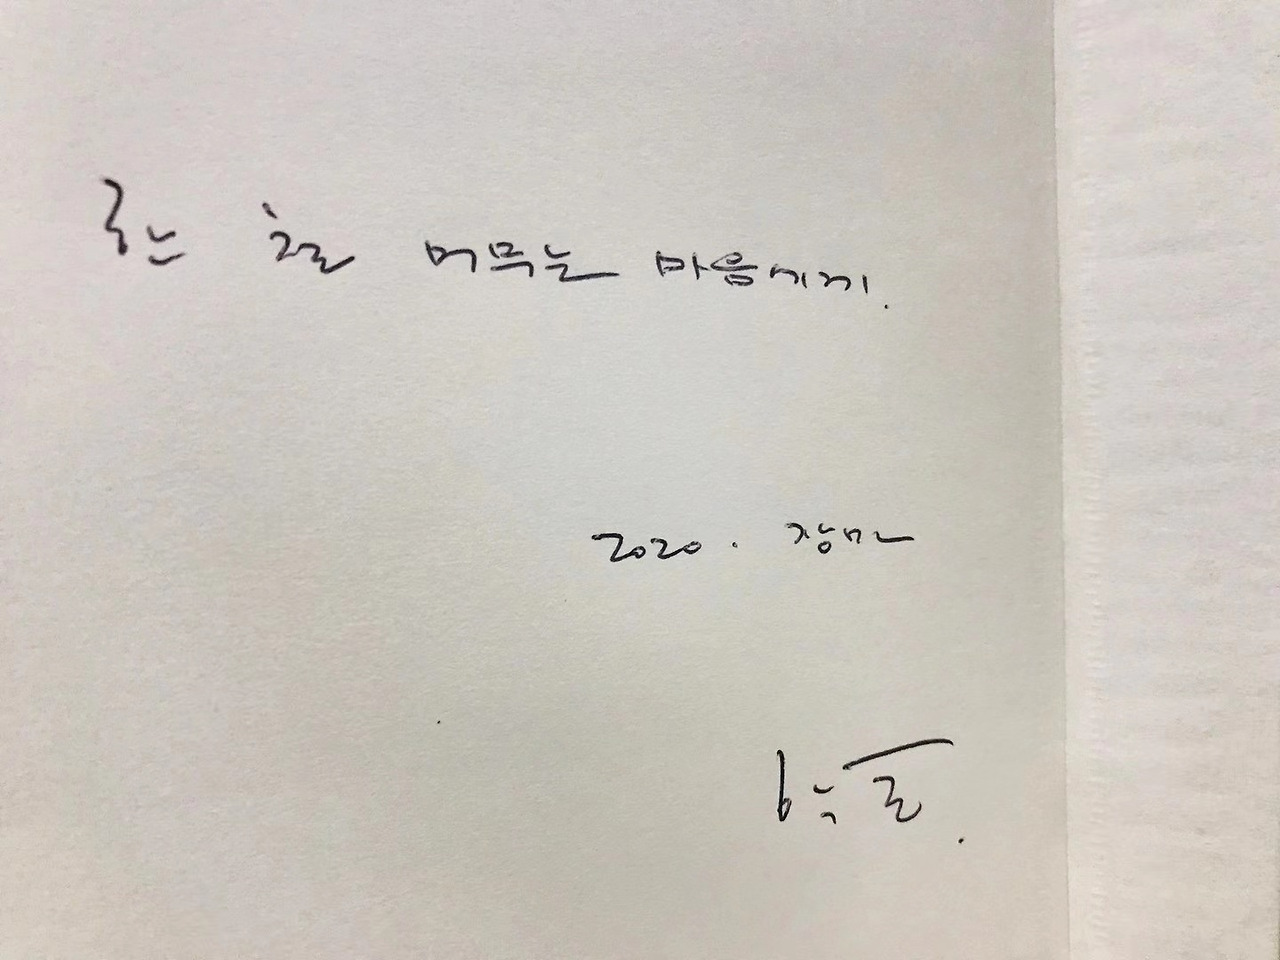 한 철 머무는 마음에게.
2020. 장마